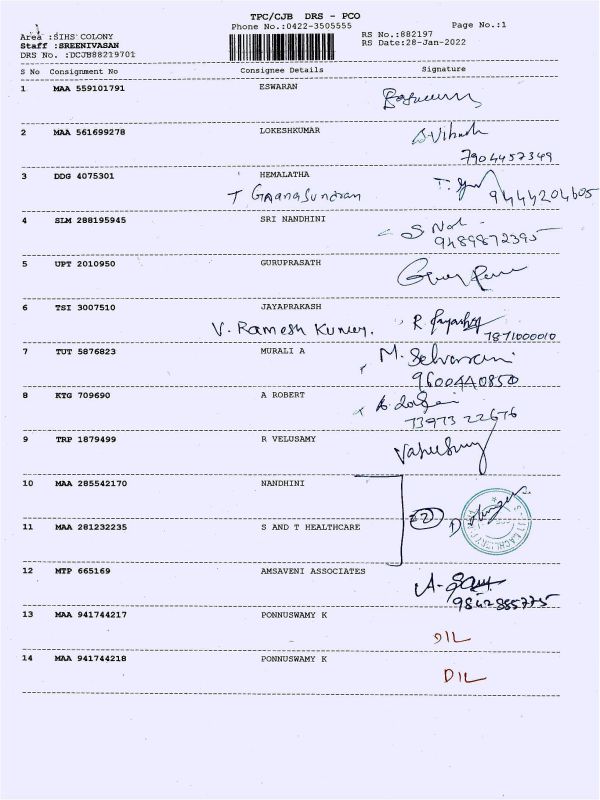 TPC/CJB DRS - PCO
Phone No.:0422-3505555
Page No.:1
Area :SIHS COLONY
RS No.:882197
Staff :SREENIVASAN
RS Date:28-Jan-2022
DRS No. :DCJB88219701
S No Consignment No Consignee Details Signature
1 MAA 559101791 ESWARAN
2 MAA 561699278 LOKESHKUMAR
7904457349
3 DDG 4075301 HEMALATHA
9444204605
4 SLM 288195945 SRI NANDHINI
9489872395
5 UPT 2010950 GURUPRASATH
6 TSI 3007510 JAYAPRAKASH
V. Ramesh
7871000010
7 TUT 5876823 MURALI A
8 KTG 709690 A ROBERT
73973 22676
9 TRP 1879499 R VELUSAMY
10 MAA 285542170 NANDHINI
11 MAA 281232235 S AND T HEALTHCARE
12 MTP 665169 AMSAVENI ASSOCIATES
9842885775
13 MAA 941744217 PONNUSWAMY K
DIL
14 MAA 941744218 PONNUSWAMY K
DIL